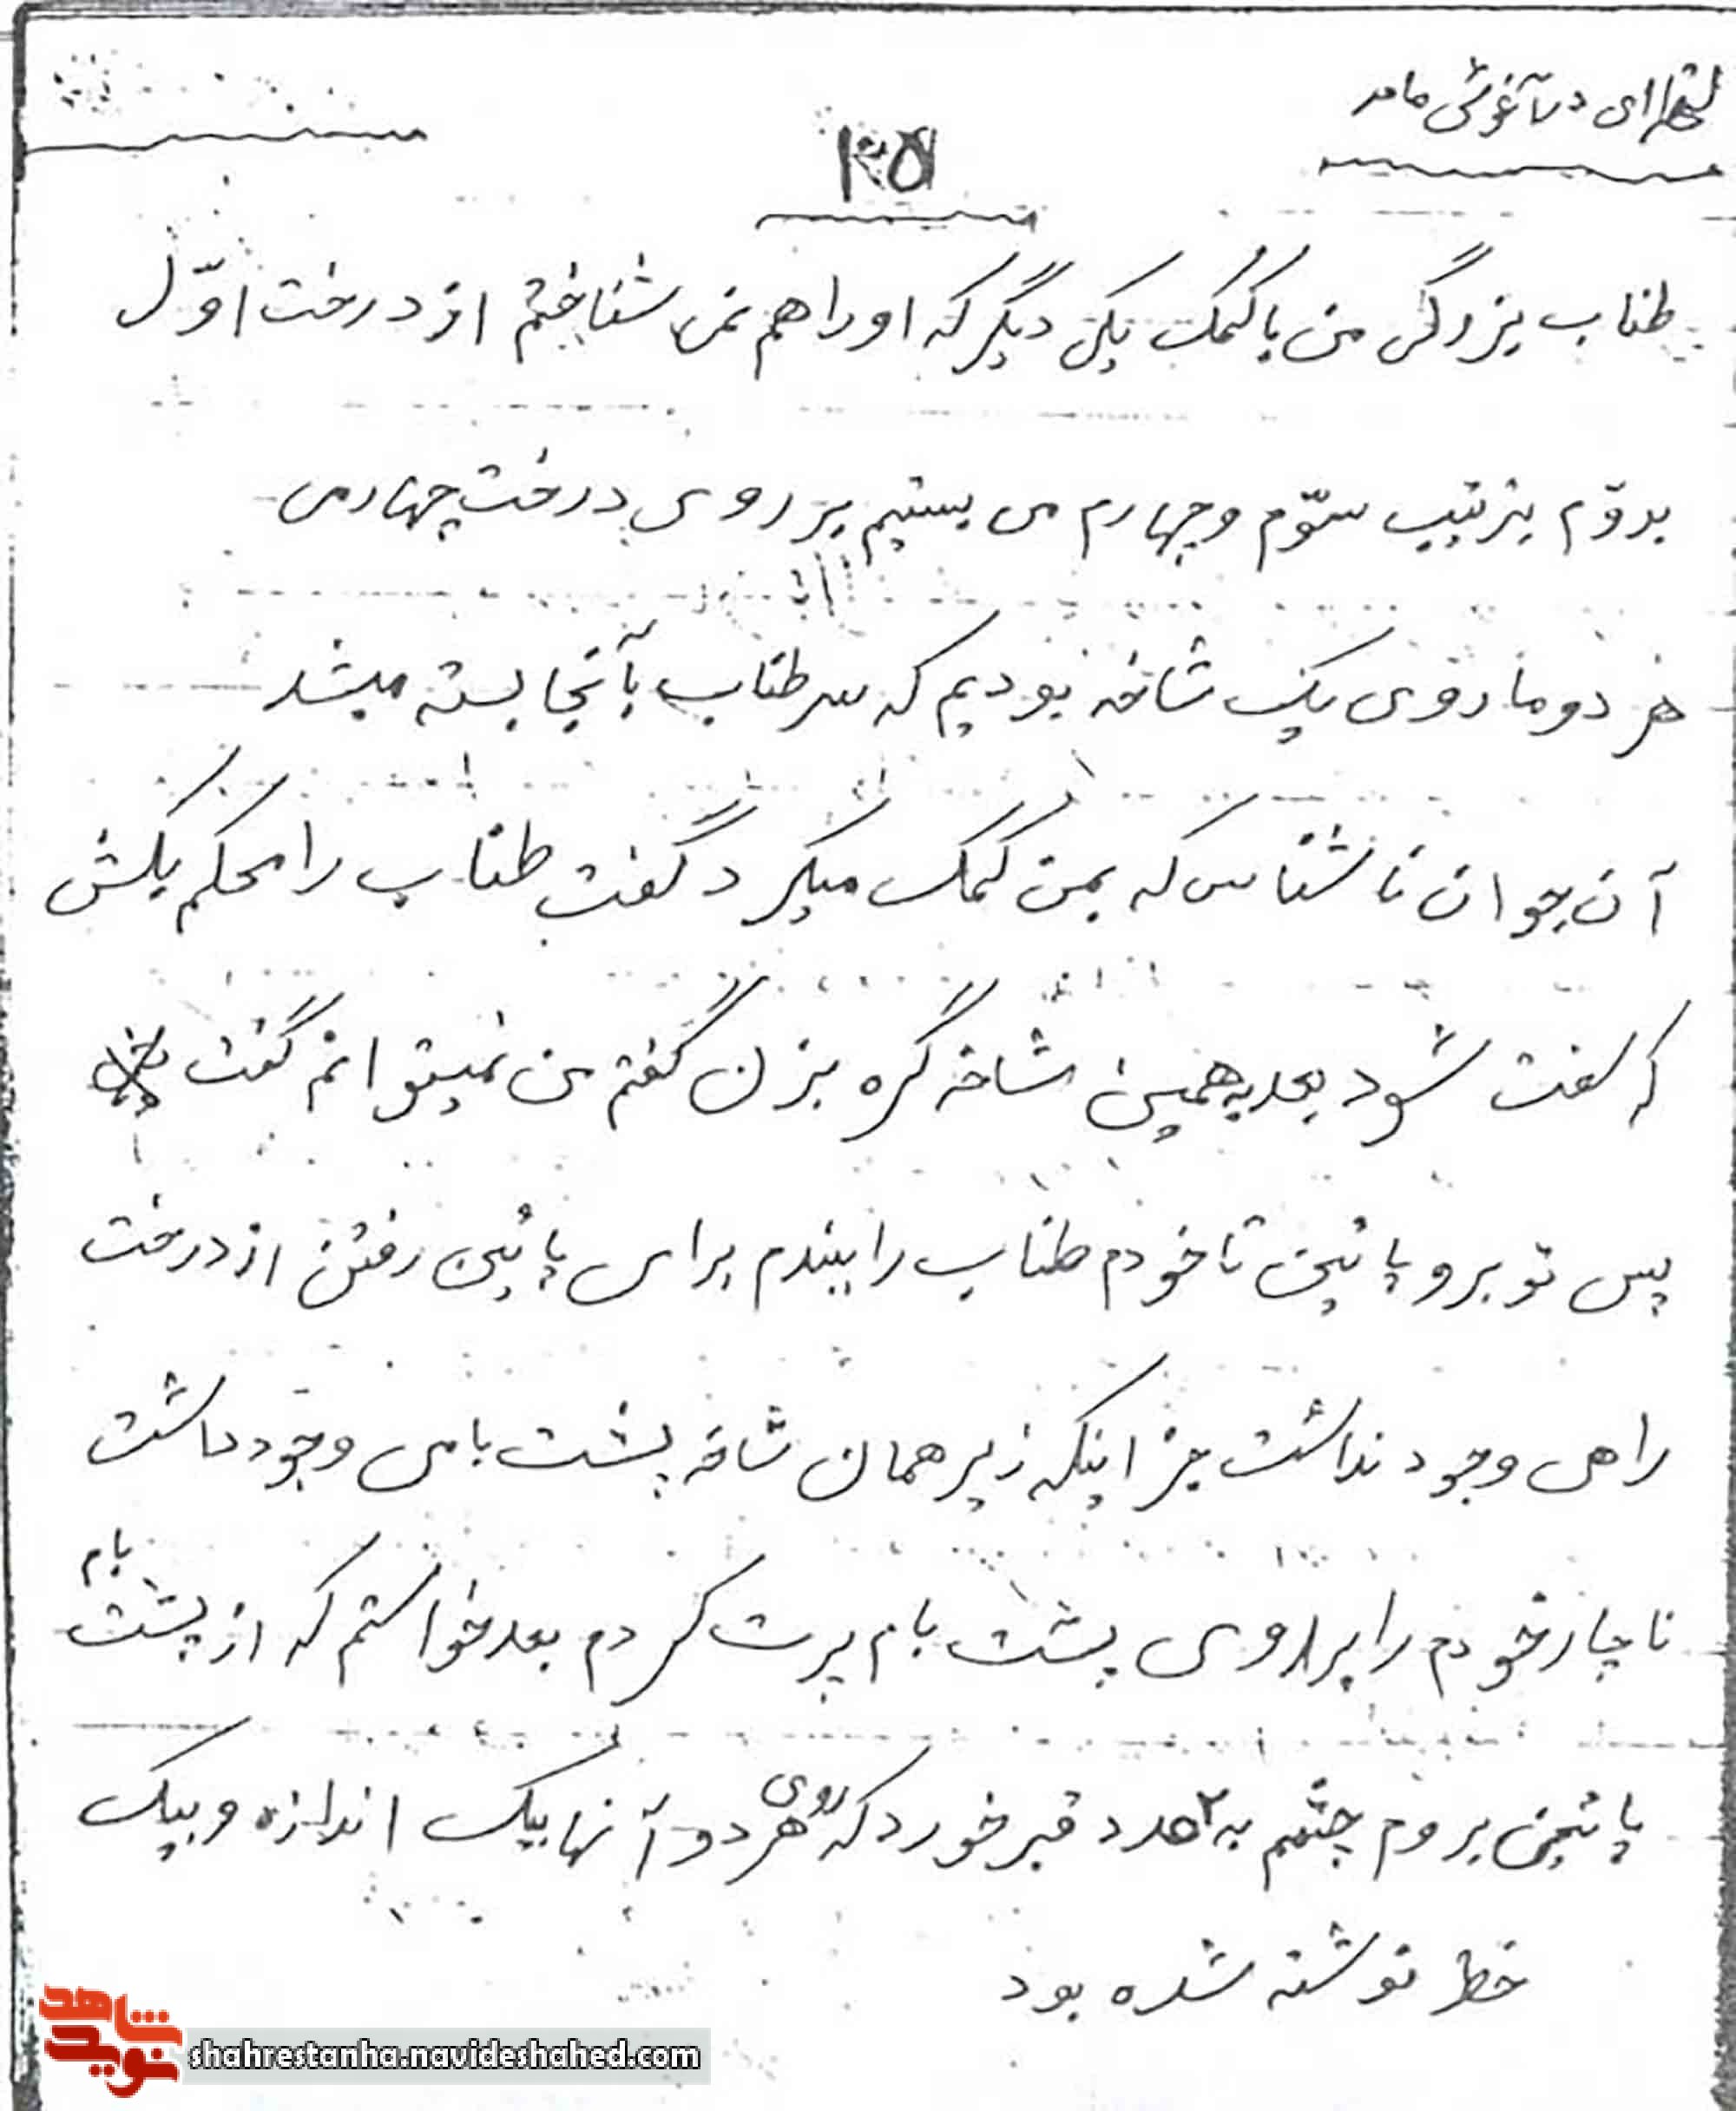 لحظه‌ای در آغوش مادر
۲۵
طناب بزرگی من با کمک یکی دیگر که او را هم نمی شناختم از درخت اوّل
بدوّم بترتیب سوّم و چهارم می بستیم بر روی درخت چهارمی
هر دو ما روی یک شاخه بودیم که سر طناب بآنجا بسته میشد
آن جوان ناشناس که بمن کمک میکرد گفت طناب را محکم بکش
که سفت شود بعد به همین شاخه گره بزن گفتم من نمیتوانم گفت
پس تو برو پائین تا خودم طناب را ببندم برای پائین رفتن از درخت
راهی وجود نداشت جز اینکه زیر همان شاخه پشت بامی وجود داشت
ناچار خودم را بر روی پشت بام پرت کردم بعد خواستم که از پشت بام
پائین بروم چشمم به دو قبر خورد که روی هر دو آنها بیک اندازه و بیک
خط نوشته شده بود
شاهد
نوید
shahrestanha.navideshahed.com